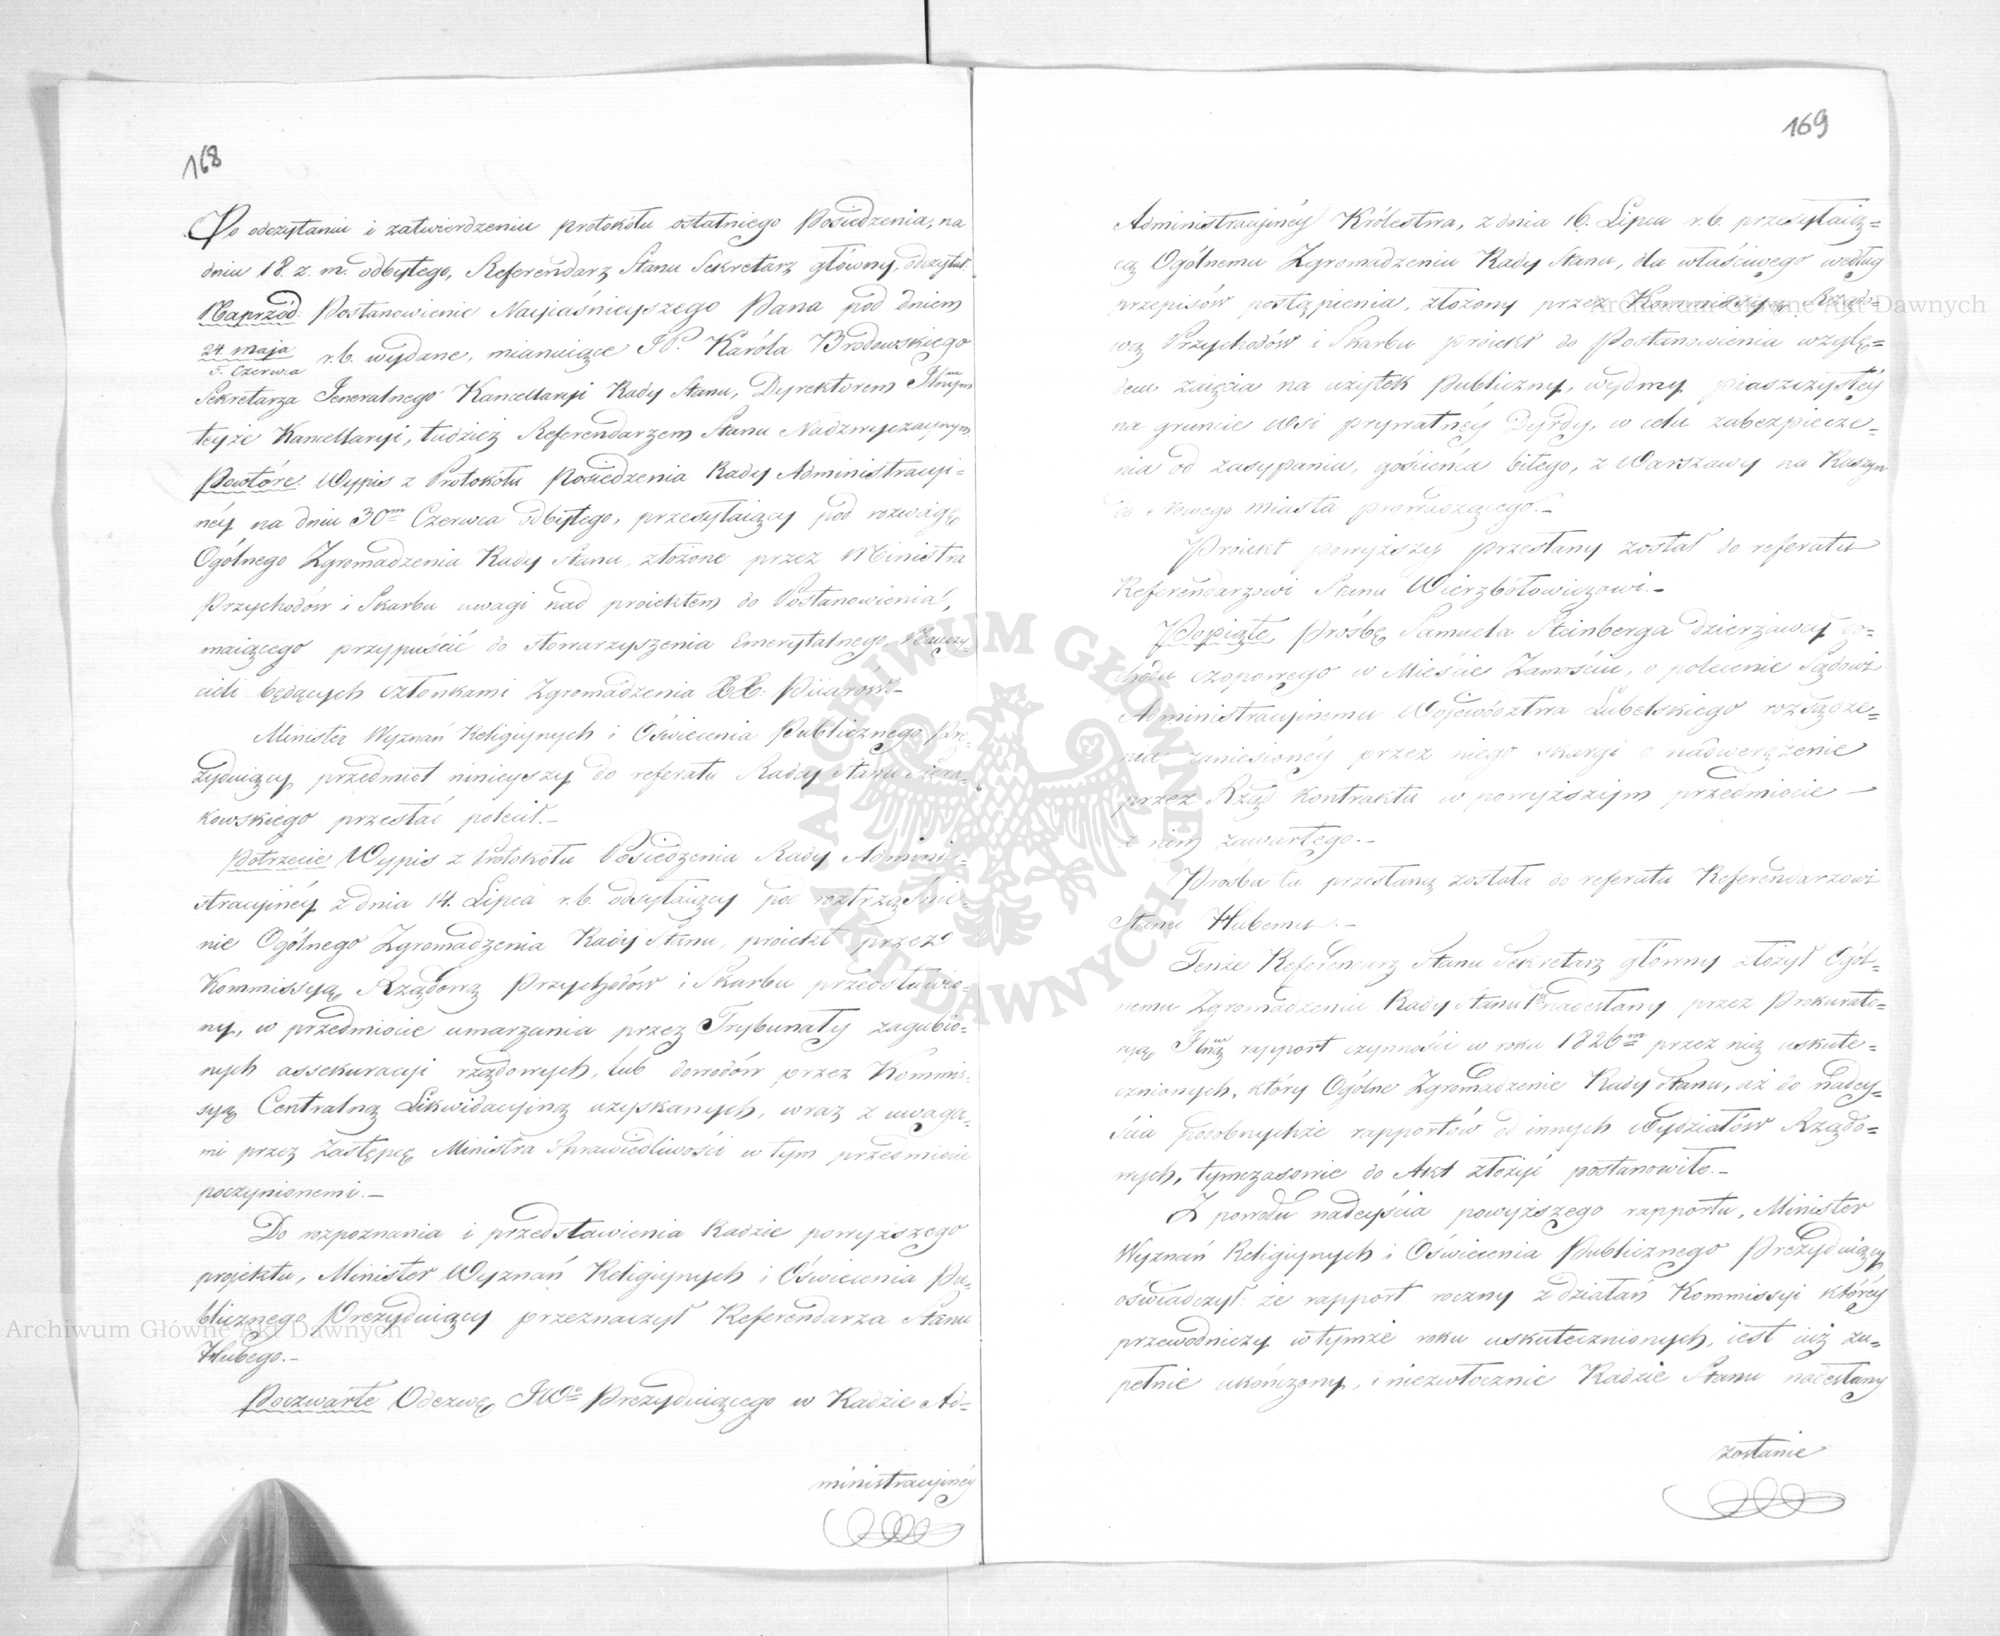 168
Po odczytaniu i zatwierdzeniu protokółu ostatniego Posiedzenia, na
dniu 18. z. m. odbytego, Referendarz Stanu Sekretarz główny, odczytał.
Naprzód: Postanowienie Naijaśnieyszego Pana pod dniem
24. maja
5. Czerwca r.b. wydane, mianuiące JP. Karóla Brodowskiego
Sekretarza Jeneralnego Kancellaryi Rady Stanu, Dyrektorem
teyże Kancellaryi, tudzież Referendarzem Stanu Nadzwyczaynym.
Powtóre: Wypis z Protokółu Posiedzenia Rady Administracyi-
néy na dniu 30m Czerwca odbytego, przesyłaiący pod rozwagę
Ogólnego Zgromadzenia Rady Stanu, złożone przez Ministra
Przychodów i Skarbu uwagi nad proiektem do Postanowienia,
maiącego przypuścić do stowarzyszenia Emerytalnego, Nauczy-
cieli będących członkami Zgromadzenia XX: Piiarow.-
Minister Wyznań Religiynych i Oświecenia Publicznego Pre-
zyduiący, przedmiot ninieyszy do referatu Radcy Stanu Siera-
kowskiego przesłać polecił.-
Potrzecie Wypis z Protokółu Posiedzenia Rady Adminis-
stracyinéy z dnia 14. Lipca r.b. odsyłaiący pod roztrząśnie-
nie Ogólnego Zgromadzenia Rady Stanu, proiekt przez
Kommissyą Rządową Przychodów i Skarbu przedstawio-
ny, w przedmiocie umarzania przez Trybunały zagubio-
nych assekuracyi rządowych, lub dowodów przez Kommis-
syą Centralną Likwidacyiną uzyskanych, wraz z uwaga-
mi przez Zastępcę Ministra Sprawiedliwości w tym przedmiocie
poczynionemi.-
Do rozpoznania i przedstawienia Radzie powyższego
projektu, Minister Wyznań Religiynych i Oświecenia Pu-
blicznego Prezyduiący przeznaczył Referendarza Stanu
Hubego.-
Poczwarte Odezwę JWo Prezyduiącego w Radzie Ad-
ministracyinéy
169
Administracyinéy Królestwa, z dnia 16. Lipca r.b. przesyłaią-
cą Ogólnemu Zgromadzeniu Rady Stanu, dla właściwego według
przepisów postąpienia, złożony przez Kommissyą Rządo-
wą Przychodów i Skarbu proiekt do Postanowienia wzglę-
dem zaięcia na użytek Publiczny, wydmy piaszczystéy
na gruncie wsi prywatnéy Dyrdy, w celu zabezpiecze-
nia od zasypania, gościńca bitego, z Warszawy na Raszyn
do Nowego miasta prowadzącego.-
Proiekt powyższy przesłany został do referatu
Referendarzowi Stanu Wierzbołowiczowi.-
Popiąte Prośbę Samuela Steinberga dzierżawcy do-
chodu czopowego w Mieście Zamościu, o polecenie Sądowi
Administracyinemu Województwa Lubelskiego rozsądze-
nie zaniesionéy przez niego skargi o nadwerężenie
przez Rząd kontraktu w powyższym przedmiocie -
z nim zawartego.-
Prośba ta przesłaną została do referatu Referendarzowi
Stanu Hubemu.-
Tenże Referendarz Stanu Sekretarz główny złożył Ogól-
nemu Zgromadzeniu Rady Stanu nadesłany przez Prokurato-
ryą rapport czynności w roku 1826m przez nią uskute-
cznionych, który Ogólne Zgromadzenie Rady Stanu, aż do nadey-
ścia podobnychże rapportów od innych Wydziałów Rządo-
wych, tymczasowie do Akt złożyć postanowiło.-
Z powodu nadeyścia powyższego rapportu, Minister
Wyznań Religiynych i Oświecenia Publicznego Prezyduiący
oświadczył: że rapport roczny z działań Kommissyi któréy
przewodniczy w tymże roku uskutecznionych, iest iuż zu-
pełnie ukończony, i niezwłocznie Radzie Stanu nadesłany
zostanie
Archiwum Główne Akt Dawnych
Archiwum Główne Akt Dawnych
ARCHIWUM GŁÓWNE AKT DAWNYCH